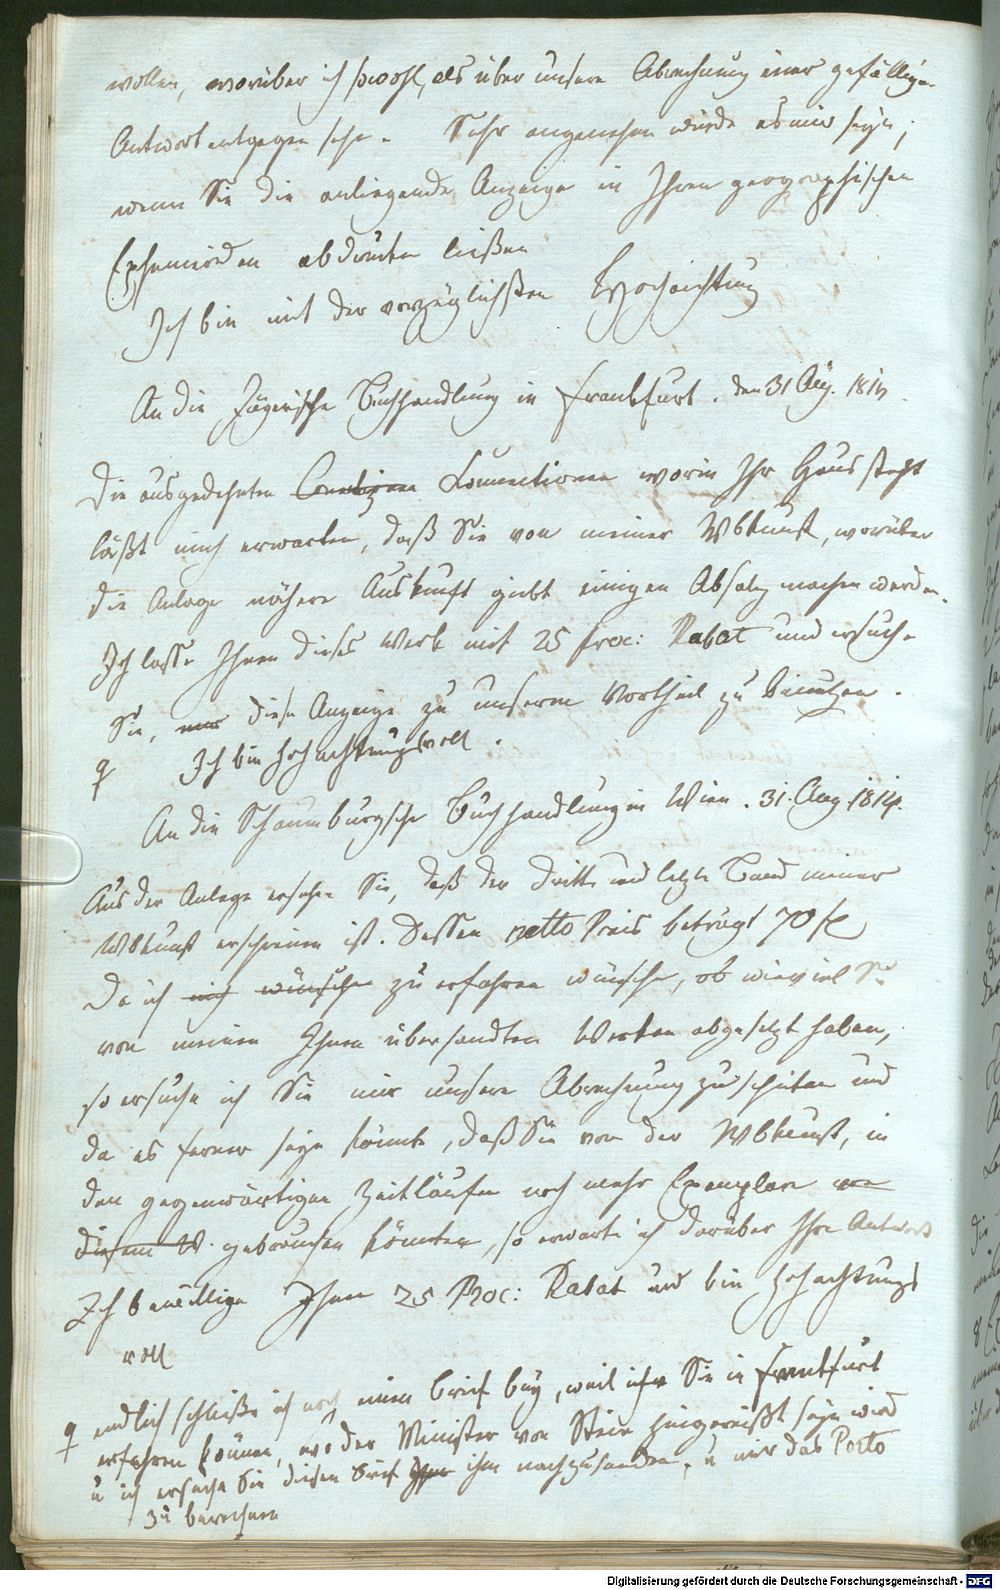 wollen, worüber ich sowohl, als über unsere Abrechnung einer gefällige
Antwort entgegen sehe. Sehr angenehm würde es mir seyn,
wenn Sie die anliegende Anzeige in Ihren geographischen
Ephemeriden abdruken ließen
Ich bin mit der vorzüglichsten Hochachtung
An die Jägerische Buchhandlung in Frankfurt. den 31 Aug. 1814.
Die ausgedehnten Connectionen worin Ihr Haus steht
läßt mich erwarten, daß Sie von meiner Wbkunst, worüber
die Anlage nähere Auskunft giebt einigen Absatz machen werden.
Ich lasse Ihnen dieses Werk mit 25 proc: Rabat und ersuche
Sie, nur diese Anzeige zu unserm Vortheil zu benutzen.
Ich bin hochachtungsvoll.
An die Schaumburgsche Buchhandlung in Wien. 31. Aug. 1814.
Aus der Anlage ersehen Sie, daß der dritte und letzte Band meiner
Wbkunst erschienen ist. Dessen netto Preis beträgt 70 fl
Da ich wünsche zu erfahren wünsche, ob wieviel Sie
von meinen Ihnen übersandten Werken abgesetzt haben,
so ersuche ich Sie mir unsere Abrechnung zuschiken und
da es ferner seyn könnte, daß Sie von der Wbkunst, in
den gegenwärtigen Zeitläufen noch mehr Exemplare von
diesem W. gebrauchen könnten, so erwarte ich darüber Ihre Antwort
Ich bewillige Ihnen 25 Proc: Rabat und bin hochachtungs
voll
endlich schließe ich noch einen brief bey, weil Sie in Frankfurt
erfahren können, wo der Minister von Stein hingereißt seyn wird
u ich ersuche Sie diesen Brief ihm nachzusenden, u mir das Porto
zu berechnen
Digitalisierung gefördert durch die Deutsche Forschungsgemeinschaft - DFG